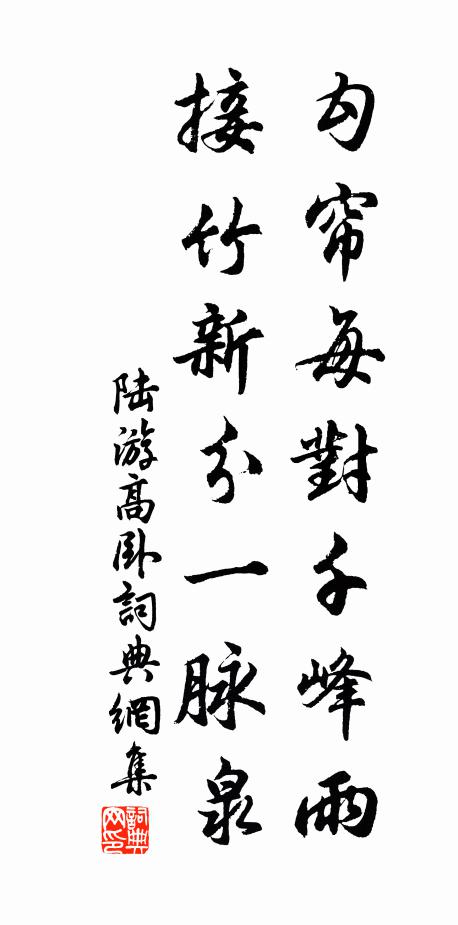 勾帘每對千峰雨
接竹新分一脉泉
陆游高卧詞典網集
詞典网印